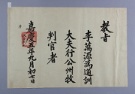 教旨
李萬源爲通訓
大夫行公州牧
判官者
嘉慶五年九月初七日